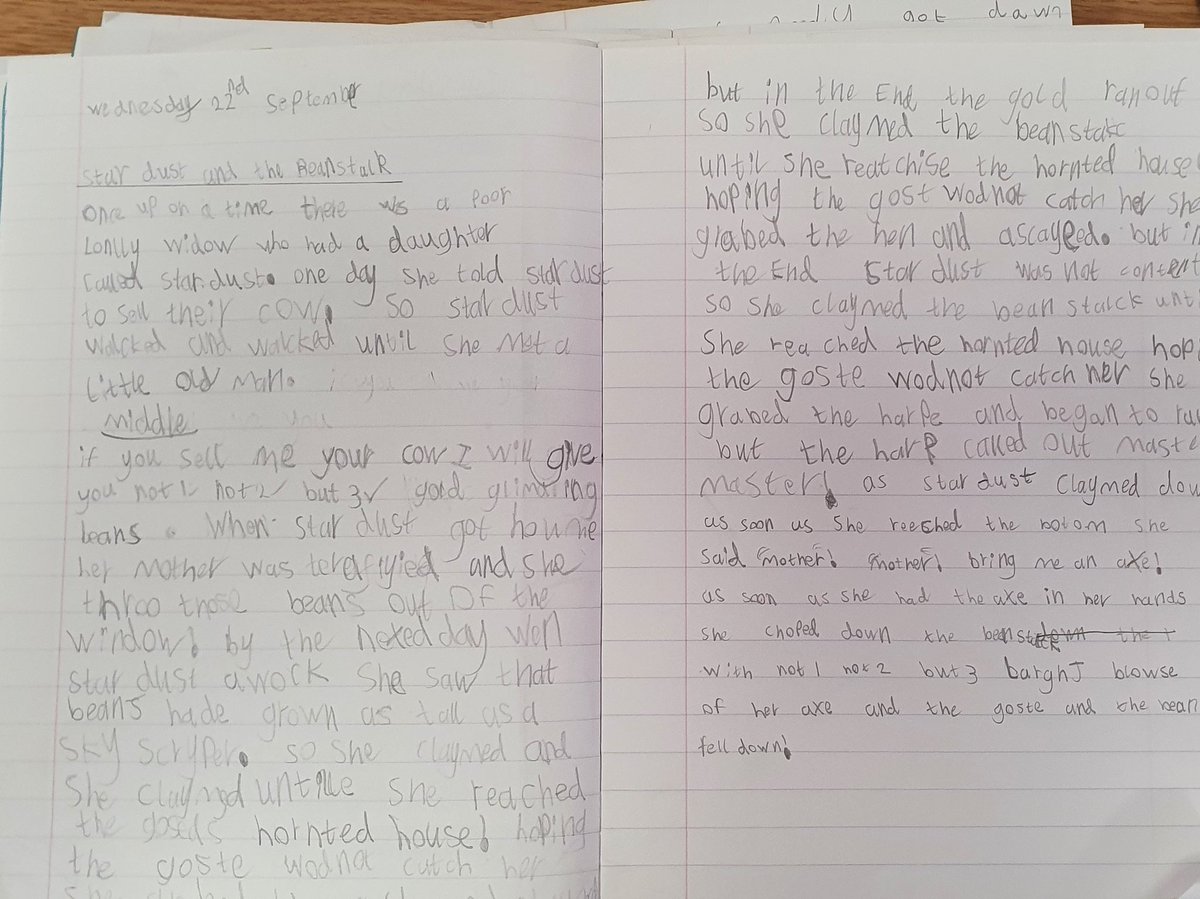 got dawn
wednesday 22nd September
Star dust and the Beanstalk
once up on a time there ws a poor
Lonlly widow who had a daughter
called stardust. one day she told stardust
to sell their cow, so stardust
walcked and walcked until she met a
little old man.
middle
if you sell me your cow I will give
you not 1 not 2 but 3 gold glimoring
beans. When star dust got houme
her mother was terefiyied and she
throo those beans out of the
window! by the nexed day wen
star dust awock she saw that
beans hade grown as tall as a
sky scryper. so she claymed and
she claymed untile she reached
the hornted house! hoping
the goste wodnot catch her
but in the End the gold ranout
so she claymed the beanstalc
until she reatchise the hornted house
hoping the gost wodnot catch her she
grabed the hen and ascayeed. but in
the End Star dust was not content
so she claymed the bean stalck unt
She rea ched the hornted house hop
the goste wodnot catch her she
grabed the harpe and began to ru
but the harp called out maste
master! as star dust claymed dow
as soon as she reeched the botom she
said "mother! "mother! bring me an axe!
as soon as she had the axe in her hands
she choped down the beanstalk
with not 1 not 2 but 3 barghJ blowse
of her axe and the goste and the bean
fell down!